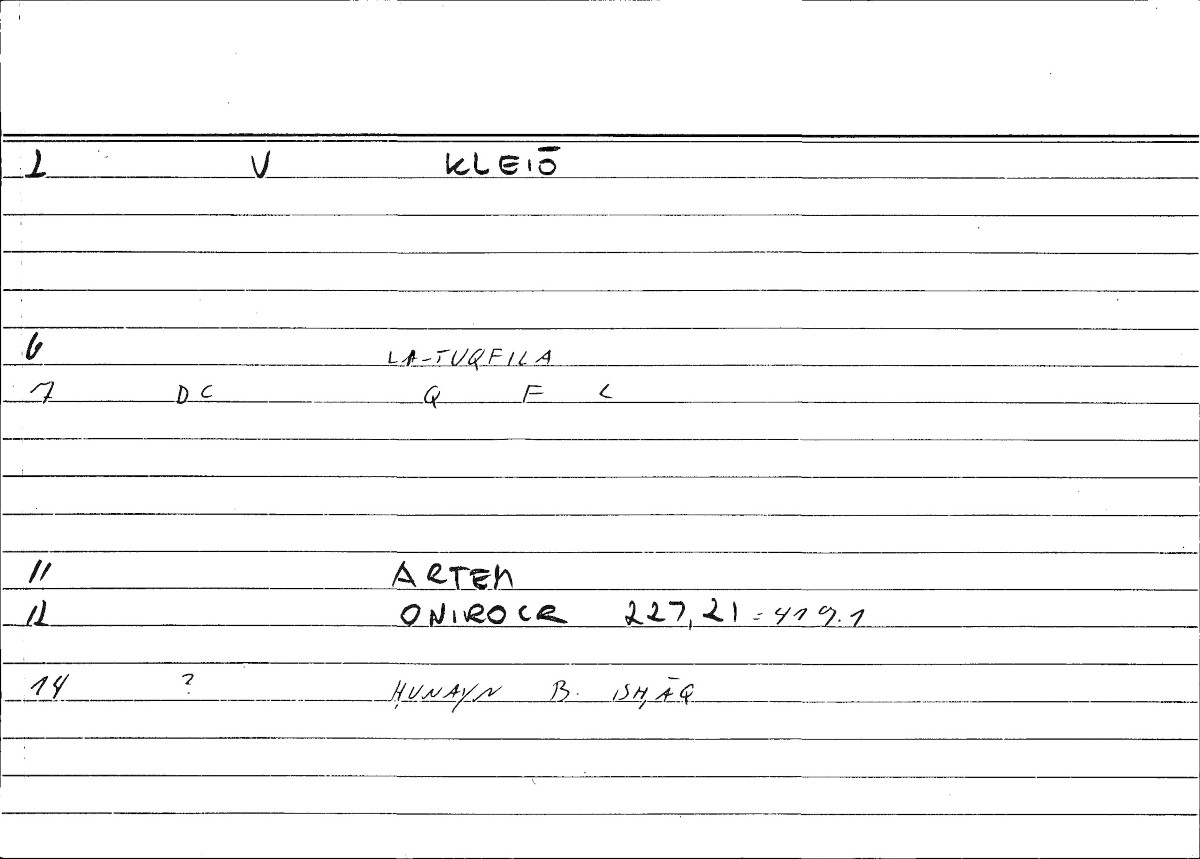 1 V KLEIŌ
6 LA-TUQFILA
7 DC Q F L
11 ARTEM
12 ONIROCR 227,21 = 419.1
14 ? ḤUNAYN B. ISḤĀQ